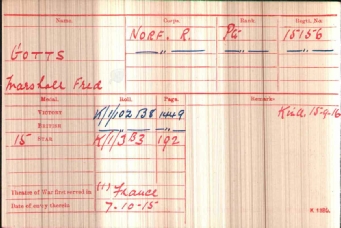 Name. Corps. Rank. Regtl. No.
GOTTS NORF. R. Pte 15156
Marshall Fred " " "
Medal. Roll. Page. Remarks
VICTORY K/1/102 B8 1449 Kin.A 15-9-16
BRITISH " "
15 STAR K/1/3 B3 192
Theatre of War first served in (1) France
Date of entry therein 7-10-15